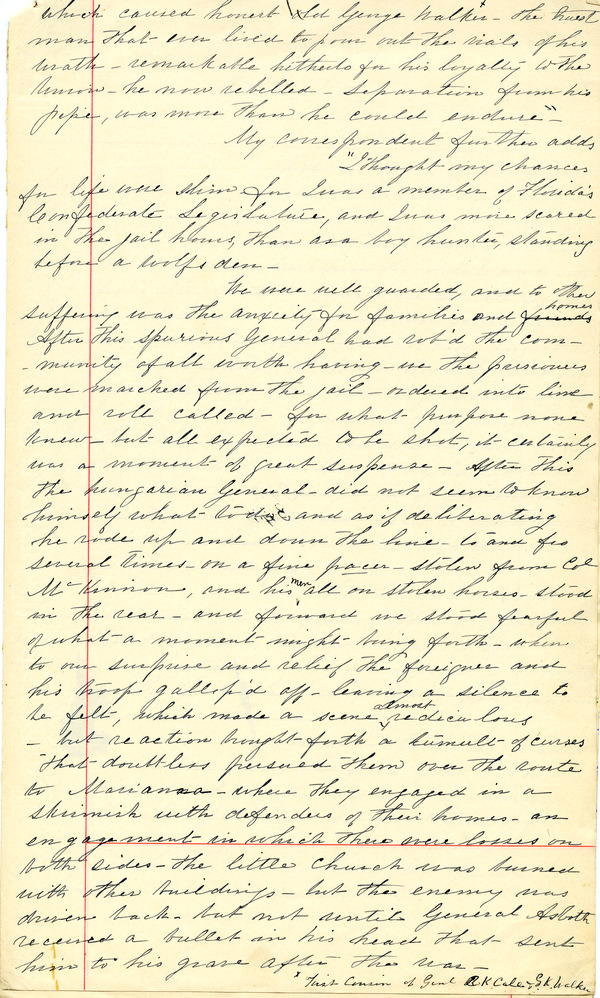 which caused honest x Col George Walker - the truest
man that ever lived to pour out the vials of his
wrath - remarkable hitherto for his loyalty to the
Union - he now rebelled - separation from his
pipe, was more than he could endure" -
My correspondent further adds
"I thought my chances
for life were slim for I was a member of Florida's
Confederate Legislature, and I was more scared
in the jail house, than as a boy hunter, standing
before a wolfs den -
We were well guarded, and to other
suffering was the anxiety for families and friends homes
After this spurious General had rob'd the com-
-munity of all worth having - we the prisoners
were marched from the jail - ordered into line
and roll called - for what purpose none
knew - but all expected to be shot, it certainly
was a moment of great suspense - After this
the hungarian General - did not seem to know
himself what to do and as if deliberating
he rode up and down the line - to and fro
several times - on a fine pacer - stolen from Col
McKinnon, and his men all on stolen horses - stood
in the rear - and forward we stood fearful
of what a moment might bring forth - when
to our surprise and relief the foreigner and
his troop gallop'd off - leaving a silence to
be felt, which made a scene almost rediculous
- but reaction brought forth a tumult of curses
that doubtless pursued them over the route
to Marianna - where they engaged in a
skirmish with defenders of their homes - an
engagement in which there were losses on
both sides - the little church was burned
with other buildings - but the enemy was
driven back - but not until General Asboth
received a bullet in his head that sent
him to his grave after the war -
x First Cousin of Genl R.K. Call & G.K. Walker